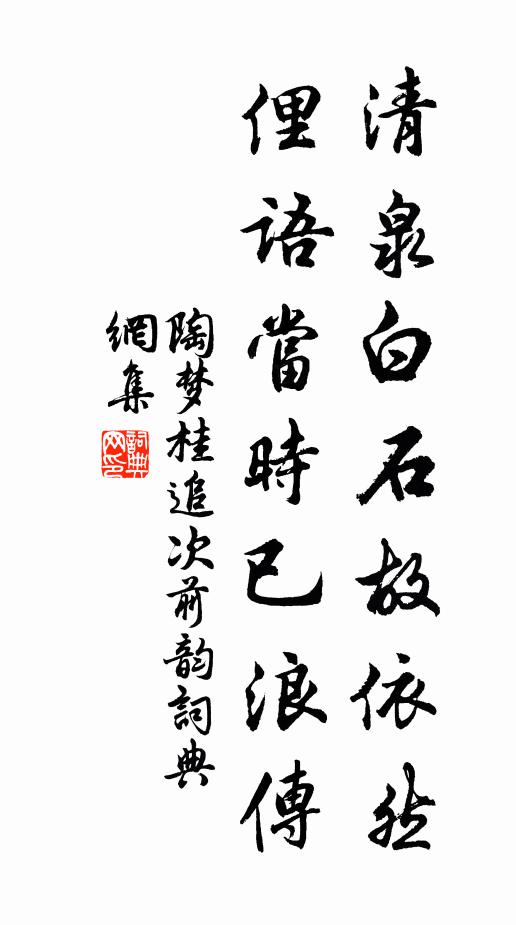 清泉白石故依然
俚語當時已浪傳
陶梦桂追次前韵詞典
網集
詞典網印